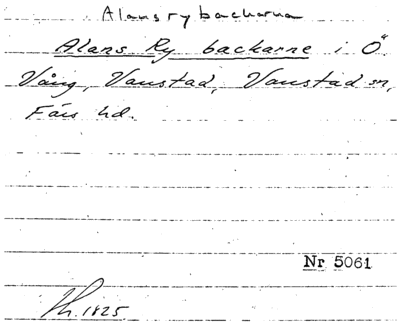 Alansrybackarna
Alans Ry backarne i Ö.
Vång, Vanstad, Vanstad sn,
Färs hd.
Nr 5061
1825